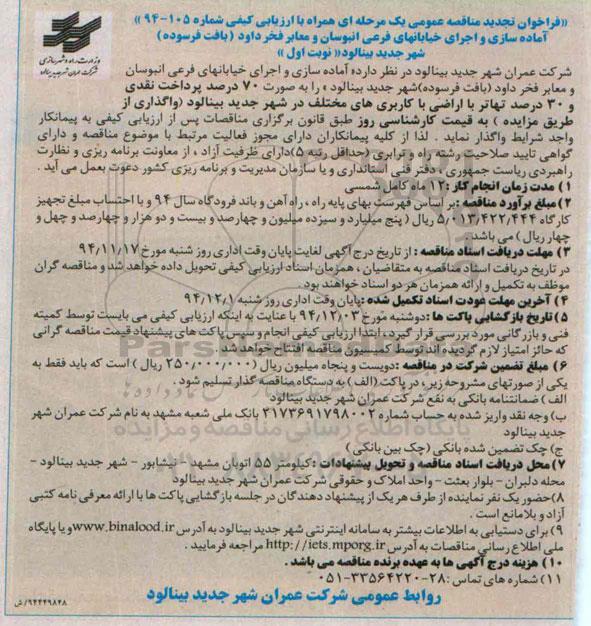 «فراخوان تجدید مناقصه عمومی یک مرحله ای همراه با ارزیابی کیفی شماره ۱۰۵-۹۴»
آماده سازی و اجرای خیابانهای فرعی انبوسان و معابر فخر داود (بافت فرسوده)
شهر جدید بینالود« نوبت اول »
وزارت راه و شهرسازی
شرکت عمران شهر جدید بینالود
شرکت عمران شهر جدید بینالود در نظر دارد« آماده سازی و اجرای خیابانهای فرعی انبوسان
و معابر فخر داود (بافت فرسوده)شهر جدید بینالود » را به صورت ۷۰ درصد پرداخت نقدی
و ۳۰ درصد تهاتر با اراضی با کاربری های مختلف در شهر جدید بینالود (واگذاری از
طریق مزایده ) به قیمت کارشناسی روز طبق قانون برگزاری مناقصات پس از ارزیابی کیفی به پیمانکار
واجد شرایط واگذار نماید . لذا از کلیه پیمانکاران دارای مجوز فعالیت مرتبط با موضوع مناقصه و دارای
گواهی تایید صلاحیت رشته راه و ترابری (حداقل رتبه ۵)دارای ظرفیت آزاد ، از معاونت برنامه ریزی و نظارت
راهبردی ریاست جمهوری ، دفتر فنی استانداری و یا سازمان مدیریت و برنامه ریزی کشور دعوت بعمل می آید .
۱) مدت زمان انجام کار : ۱۲ ماه کامل شمسی
۲)مبلغ برآورد مناقصه :بر اساس فهرست بهای پایه راه ، راه آهن و باند فرودگاه سال ۹۴ و با احتساب مبلغ تجهیز
کارگاه ۵/۰۱۳/۴۲۲/۴۴۴ ریال ( پنج میلیارد و سیزده میلیون و چهارصد و بیست و دو هزار و چهارصد و چهل و
چهار ریال ) می باشد.
۳) مهلت دریافت اسناد مناقصه : از تاریخ درج آگهی لغایت پایان وقت اداری روز شنبه مورخ ۹۴/۱۱/۱۷
در تاریخ دریافت اسناد مناقصه به متقاضیان ، همزمان اسناد ارزیابی کیفی تحویل داده خواهد شد و مناقصه گران
موظف به تکمیل و ارائه همزمان هر دو اسناد خواهند بود .
۴) آخرین مهلت عودت اسناد تکمیل شده :پایان وقت اداری روز شنبه ۹۴/۱۲/۱
۵) تاریخ بازگشایی پاکت ها :دوشنبه مورخ ۹۴/۱۲/۰۳ با عنایت به اینکه ارزیابی کیفی می بایست توسط کمیته
فنی و بازرگانی مورد بررسی قرار گیرد ، ابتدا ارزیابی کیفی انجام و سپس پاکت های پیشنهاد قیمت مناقصه گرانی
که حائز امتیاز لازم گردیده اند توسط کمیسیون مناقصه افتتاح خواهد شد
۶) مبلغ تضمین شرکت در مناقصه :دویست و پنجاه میلیون ریال (۲۵۰/۰۰۰/۰۰۰ ریال ) است که باید فقط به
یکی از صورتهای مشروحه زیر ، در پاکت (الف ) به دستگاه مناقصه گذار تسلیم شود .
الف ) ضمانتنامه بانکی به نفع شرکت عمران شهر جدید بینالود
ب) وجه نقد واریز شده به حساب شماره ۲۱۷۳۶۹۱۷۹۸۰۰۲ بانک ملی شعبه مشهد به نام شرکت عمران شهر
جدید بینالود
ج) چک تضمین شده بانکی (چک بین بانکی )
۷) محل دریافت اسناد مناقصه و تحویل پیشنهادات : کیلومتر ۵۵ اتوبان مشهد - نیشابور - شهر جدید بینالود -
محله دلبران - بلوار بعثت - واحد املاک و حقوقی شرکت عمران شهر جدید بینالود
۸)حضور یک نفر نماینده از طرف هر یک از پیشنهاد دهندگان در جلسه بازگشایی پاکت ها با ارائه معرفی نامه کتبی
آزاد و بلامانع است .
۹) برای دستیابی به اطلاعات بیشتر به سامانه اینترنتی شهر جدید بینالود به آدرس www.binalood.ir و یا پایگاه
ملی اطلاع رسانی مناقصات به آدرس http://iets.mporg.ir مراجعه فرمایید .
۱۰) هزینه درج آگهی ها به عهده برنده مناقصه می باشد .
۱۱) شماره های تماس :۲۸-۳۳۵۶۴۲۲۰-۰۵۱
روابط عمومی شرکت عمران شهر جدید بینالود
۹۴۴۴۹۸۴۸/ش